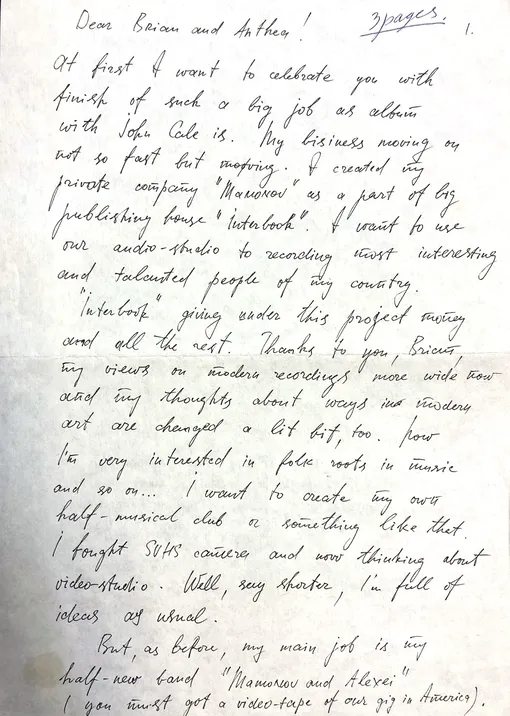 3 pages.
1.
Dear Brian and Anthea!
At first I want to celebrate you with
finish of such a big job as album
with John Cale is. My bisiness moving on
not so fast but moving. I created my
private company "Mamonov" as a part of big
publishing house "Interbook". I want to use
our audio-studio to recording most interesting
and talanted people of my country.
"Interbook" giving under this project money
and all the rest. Thanks to you, Brian,
my views on modern recordings more wide now
and my thoughts about ways in modern
art are changed a lit bit, too. Now
I'm very interested in folk roots in music
and so on... I want to create my own
half-musical club or something like that.
I fought SVHS camera and now thinking about
video-studio. Well, say shorter, I'm full of
ideas as usual.
But, as before, my main job is my
half-new band "Mamonov and Alexei"
(you must got a video-tape of our gig in America).